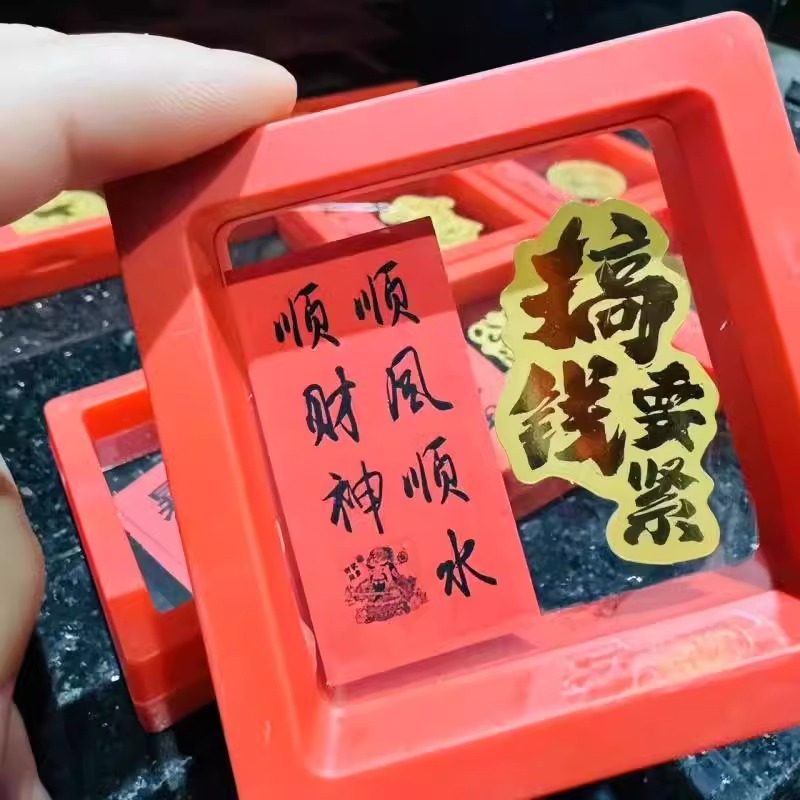 顺风顺水
顺财神
搞钱
要紧